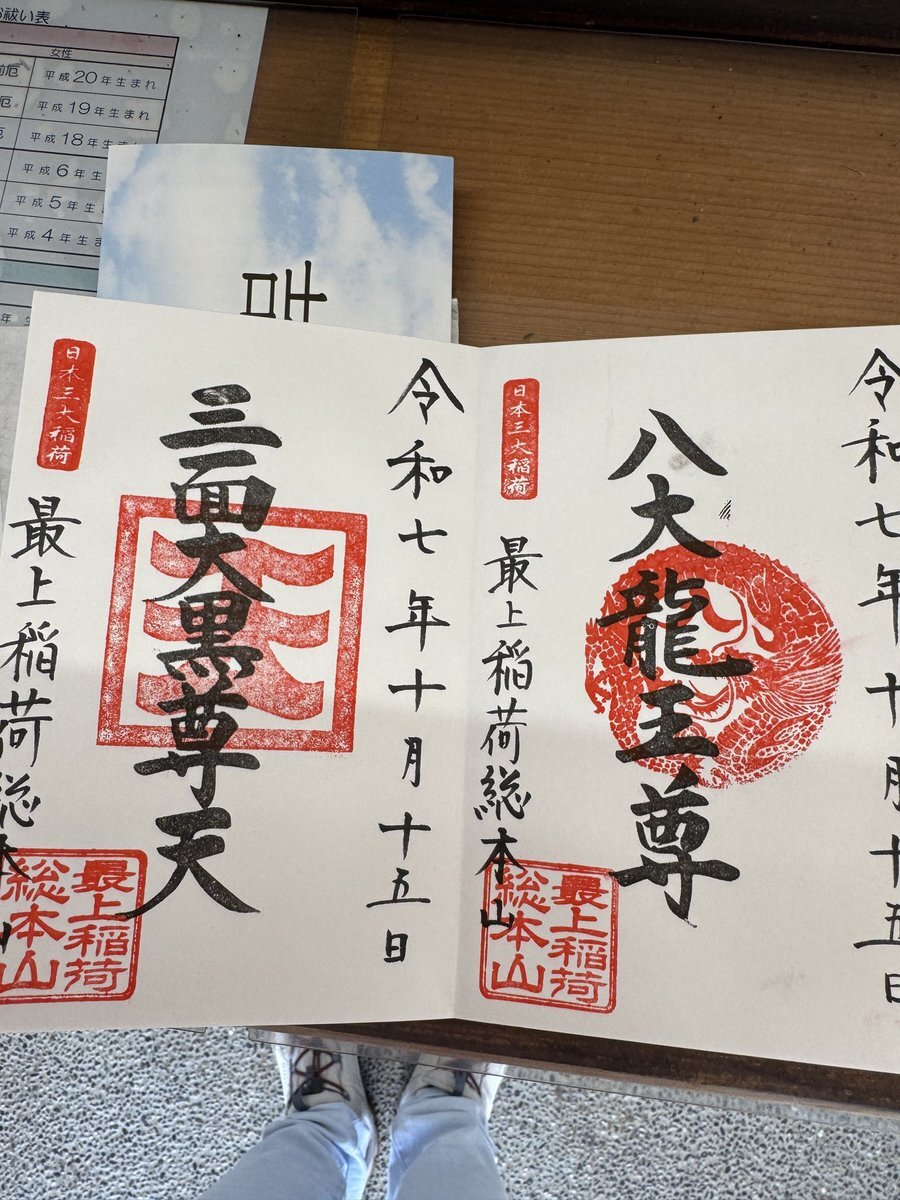 祓い表
女性
前厄
平成20年生まれ
平成19年生まれ
平成18年生まれ
平成6年生
平成5年生
平成4年生ま
年生
令和七年十月十五日
八大龍王尊
日本三大稲荷
最上稲荷総本山
最上稲荷
総本山
令和七年十月十五日
三面大黒尊天
日本三大稲荷
最上稲荷総本山
最上稲荷
総本山